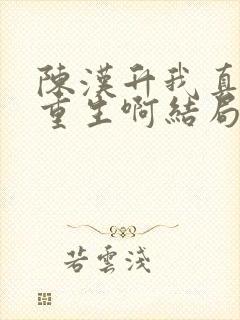 陳漢升我真
重生啊結局
若雲淺